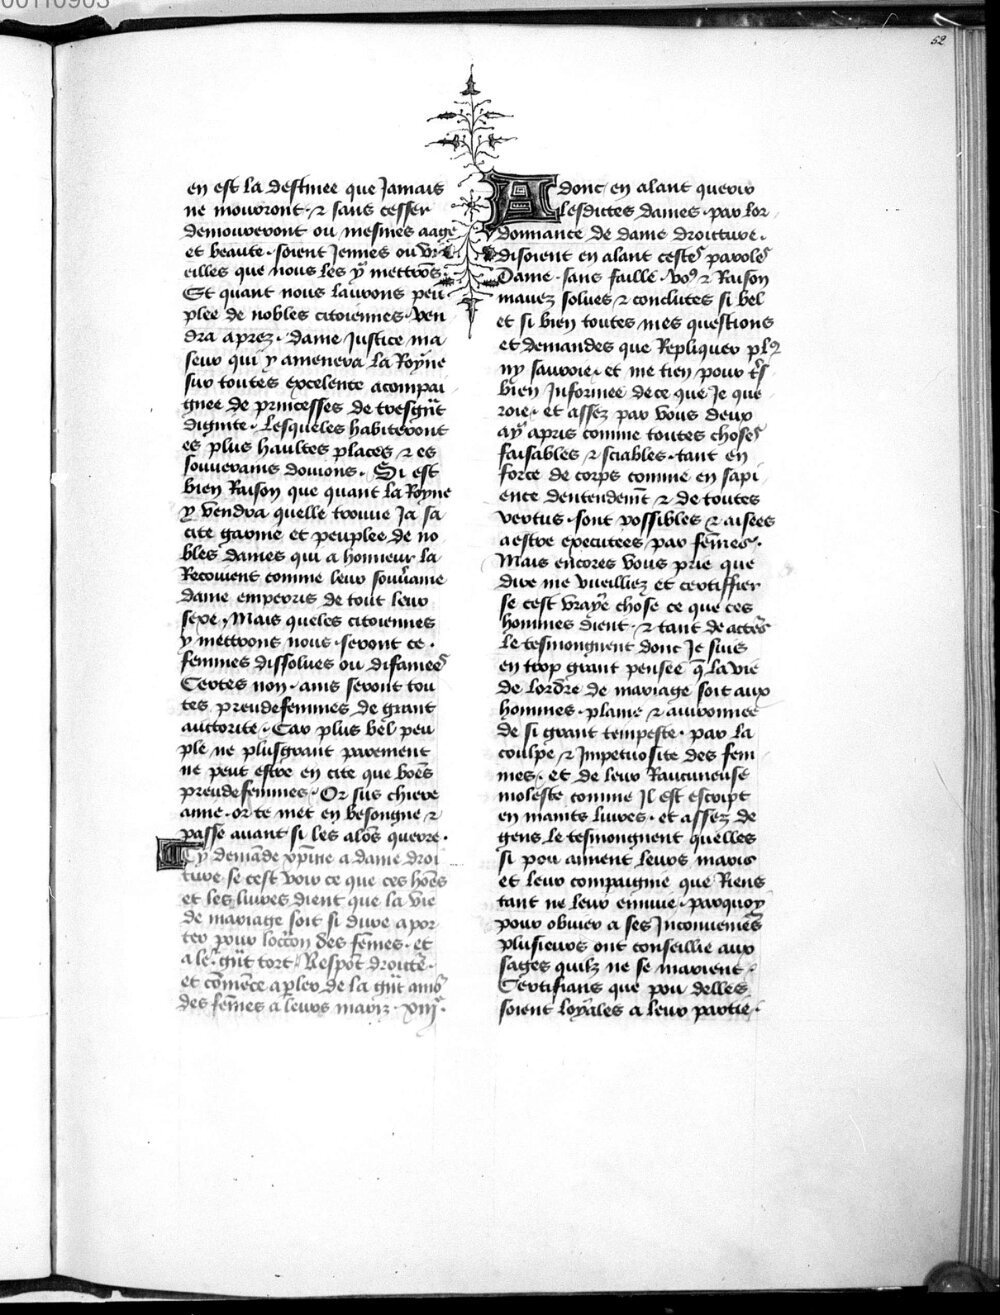 00110903
52
en est la destinee que Jamais
ne mouvront · ⁊ sans cesser
demouveront ou mesmes aage
et beaute · soient Jennes ou vi
eilles que nous les y mettrõs
Et quant nous laurons peu
plee de nobles citoiennes · ven
dra aprez · dame Justice ma
seur qui y amenera la Royne
sur toutes excelence acompai
gnee de princesses de tresgñt
dignite · Lesqueles habiteront
es plus haultes places ⁊ es
souverains doivons · Si est
bien Raison que quant la Royne
y vendra quelle trouve Ja sa
cite garnie et peuplee de no
bles dames qui a honneur la
Recoivent comme leur souv̾aine
dame emperris de tout leur
sexe · Mais queles citoiennes
y mettrons nous · seront ce ·
femmes dissolues ou difamees
Certes non · ains seront tou
tes preudefemmes de grant
auctorite · Car plus bel peu
ple ne plusgrant parement
ne peut estre en cite que bões
preudefemmes · Or sus chiere
amie · or te met en besongne ⁊
passe avant si les alõs querre ·
Cy demãde xpĩne a dame droi
ture se cest voir ce que ces hõẽs
et les livres dient que la vie
de mariage soit si dure a por
ter pour loccõn des fẽmes · et
a le͛ gñt tort · Respõt droit̾e ·
et cõmẽce a pler de la gñt amo͛
des fẽmes a leurs mariz · xiiĩ ·
Adonc en alant querir
lesdictes dames · par lor
donnance de dame droicture ·
disoient en alant ceste͛ parole͛
Dame · sans faille · vo⁹ ⁊ Raison
mavez solues ⁊ conclutes si bel
et si bien toutes mes questions
et demandes que Repliquer pl⁹
ny sauroie · et me tien pour ts̃
bien Informee de ce que Je que
roie · et assez par vous deux
ay apris comme toutes choses
faisables ⁊ sciables · tant en
force de corps comme en sapi
ence dentendem̃t ⁊ de toutes
vertus · sont possibles ⁊ aisees
a estre executees par fẽmes ·
Mais encores vous prie que
dire me vueilliez et certiffier
se cest vraye chose ce que ces
hommes dient · ⁊ tant de acte͛s
le tesmongnent donc Je suis
en trop grant pensee q̃ la vie
de lordre de mariage soit aux
hommes · plaine ⁊ avironnee
de si grant tempeste · par la
coulpe ⁊ Impetuosite des fem
mes · et de leur Rancuneuse
moleste comme Il est escript
en maints livres · et assez de
gens le tesmongnent quelles
si pou aiment leurs maris
et leur compaignie que Riens
tant ne leur ennuie · parquoy
pour obvier a ses Inconveniẽs
plusieurs ont conseillie aux
sages quilz ne se marient ·
Certifians que pou delles
soient loyales a leur partie ·